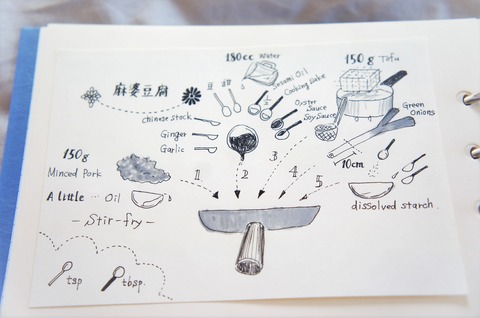 麻婆豆腐
180cc Water
150g Tofu
Sesami Oil
Cooking Sake
Oyster
Sauce
Soy Sauce
Green
Onions
Chinese stock
Ginger
Garlic
150g
Minced Pork
A little … Oil
- Stir-fry -
1
2
3
4
5
10cm
dissolved starch.
tsp
tbsp.